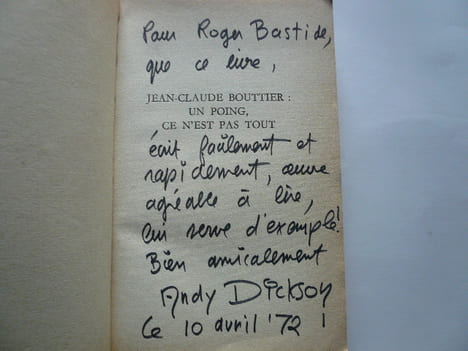 Pour Roger Bastide,
que ce livre,
JEAN-CLAUDE BOUTTIER :
UN POING,
CE N'EST PAS TOUT
écrit facilement et
rapidement, œuvre
agréable à lire,
lui serve d'exemple !
Bien amicalement
Andy Dickson
Ce 10 avril '72 !